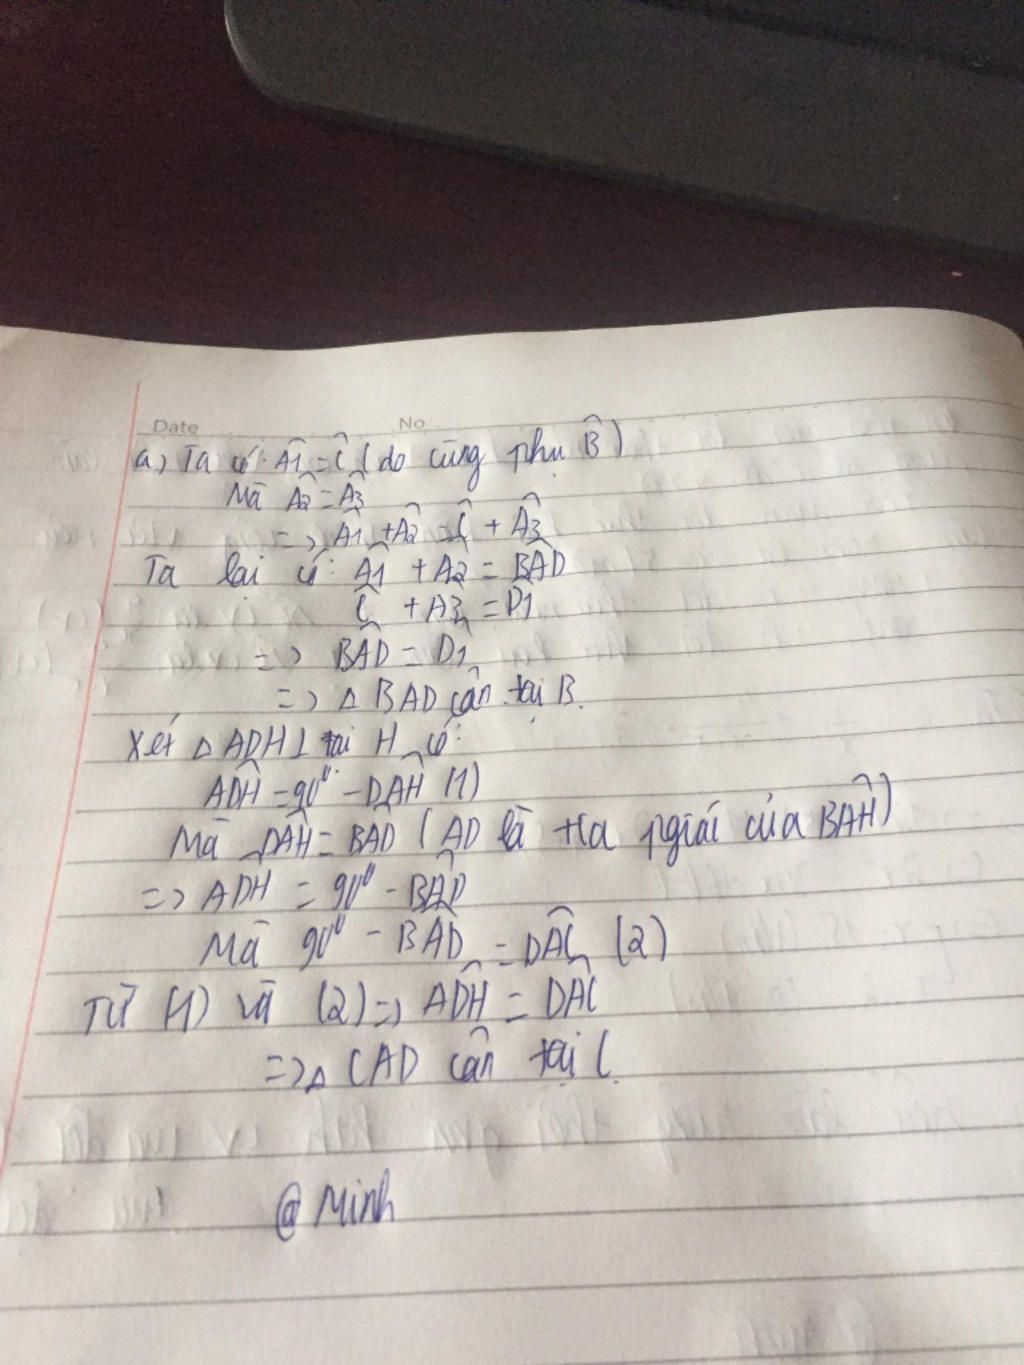 Date No
a) Ta có: Â1 = Ĉ (do cùng phụ B̂)
Mà Â2 = Â3
=> Â1 + Â2 = Ĉ + Â3
Ta lại có: Â1 + Â2 = BÂD
Ĉ + Â3 = D̂1
=> BÂD = D̂1
=> △ BAD cân tại B.
Xét △ ADH ⊥ tại H có:
AD̂H = 90⁰ - DÂH (1)
Mà DÂH = BÂD (AD là tia pgiác của BÂH)
=> AD̂H = 90⁰ - BÂD
Mà 90⁰ - BÂD = DÂC (2)
Từ (1) và (2) => AD̂H = DÂC
=> △ CAD cân tại C.
@ Minh